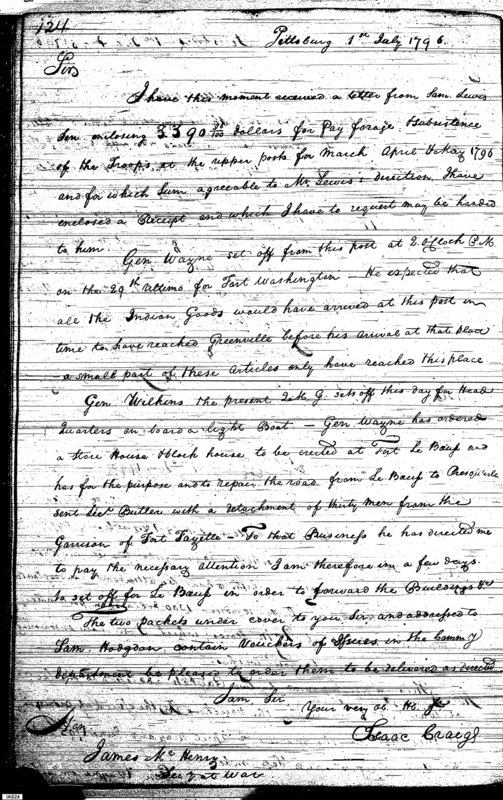 124
Pittsburg 1st July 1796.
Sir
I have this moment received a letter from Sam. Lewis
Sen. enclosing 3390 dollars for Pay forage Subsistence
of the Troops at the upper posts for March April & May 1796
and for which Sum agreeable to Mr. Lewis's direction, I have
enclosed a Receipt and which I have to request may be handed
to him.
Gen Wayne set off from this post at 2 oClock P.M.
on the 29th ultimo for Fort Washington — He expected that
all the Indian Goods would have arrived at this post in
time to have reached Greenville before his arrival at that place
a small part of these articles only have reached this place
Gen. Wilkins the present Q.M.G. sets off this day for Head
Quarters on board a light Boat — Gen Wayne has ordered
a Store House & block house to be erected at Fort Le Bœuf and
has for the purpose and to repair the road from Le Bœuf to Presquisle
sent Lieut Butler with a detachment of thirty men from the
Garrison of Fort Fayette — To that Business he has directed me
to pay the necessary attention I am therefore in a few days
to set off for Le Bœuf in order to forward the Buildings &c
The two packets under cover to you Sir and addressed to
Sam. Hodgdon contain Vouchers of in the
department be pleased to order them to be delivered as directed
I am Sir
Your very ob. Hb.
Isaac Craig
James Mc Henry
Secy at War
IAS24